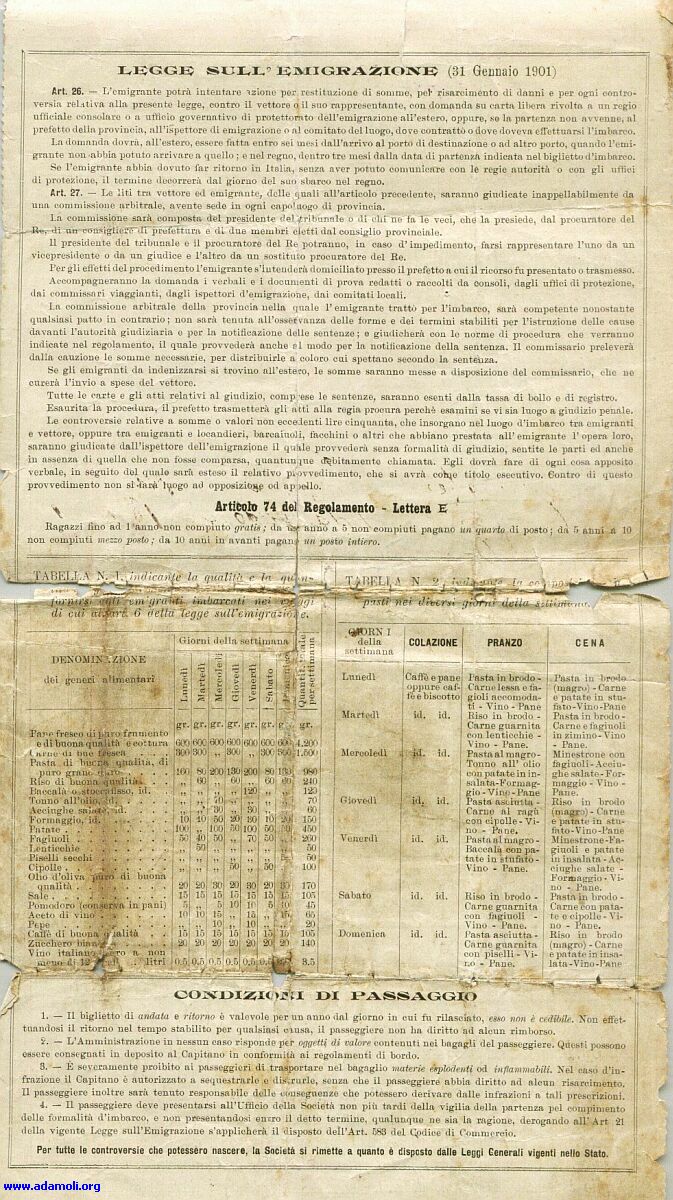 LEGGE SULL' EMIGRAZIONE (31 Gennaio 1901)
Art. 26. — L'emigrante potrà intentare azione per restituzione di somme, per risarcimento di danni e per ogni contro-
versia relativa alla presente legge, contro il vettore o il suo rappresentante, con domanda su carta libera rivolta a un regio
ufficiale consolare o a ufficio governativo di protettorato dell'emigrazione all'estero, oppure, se la partenza non avvenne, al
prefetto della provincia, all'ispettore di emigrazione o al comitato del luogo, dove contrattò o dove doveva effettuarsi l'imbarco.
La domanda dovrà, all'estero, essere fatta entro sei mesi dall'arrivo al porto di destinazione o ad altro porto, quando l'emi-
grante non abbia potuto arrivare a quello; e nel regno, dentro tre mesi dalla data di partenza indicata nel biglietto d'imbarco.
Se l'emigrante abbia dovuto far ritorno in Italia, senza aver potuto comunicare con le regie autorità o con gli uffici
di protezione, il termine decorrerà dal giorno del suo sbarco nel regno.
Art. 27. — Le liti tra vettore ed emigrante, delle quali all'articolo precedente, saranno giudicate inappellabilmente da
una commissione arbitrale, avente sede in ogni capoluogo di provincia.
La commissione sarà composta del presidente del tribunale o di chi ne fa le veci, che la presiede, dal procuratore del
Re, di un consigliere di prefettura e di due membri eletti dal consiglio provinciale.
Il presidente del tribunale e il procuratore del Re potranno, in caso d'impedimento, farsi rappresentare l'uno da un
vicepresidente o da un giudice e l'altro da un sostituto procuratore del Re.
Per gli effetti del procedimento l'emigrante s'intenderà domiciliato presso il prefetto a cui il ricorso fu presentato o trasmesso.
Accompagneranno la domanda i verbali e i documenti di prova redatti o raccolti da consoli, dagli uffici di protezione,
dai commissari viaggianti, dagli ispettori d'emigrazione, dai comitati locali.
La commissione arbitrale della provincia nella quale l'emigrante trattò per l'imbarco, sarà competente nonostante
qualsiasi patto in contrario; non sarà tenuta all'osservanza delle forme e dei termini stabiliti per l'istruzione delle cause
davanti l'autorità giudiziaria e per la notificazione delle sentenze; e giudicherà con le norme di procedura che verranno
indicate nel regolamento, il quale provvederà anche al modo per la notificazione della sentenza. Il commissario preleverà
dalla cauzione le somme necessarie, per distribuirle a coloro cui spettano secondo la sentenza.
Se gli emigranti da indennizzarsi si trovino all'estero, le somme saranno messe a disposizione del commissario, che ne
curerà l'invio a spese del vettore.
Tutte le carte e gli atti relativi al giudizio, comprese le sentenze, saranno esenti dalla tassa di bollo e di registro.
Esaurita la procedura, il prefetto trasmetterà gli atti alla regia procura perchè esamini se vi sia luogo a giudizio penale.
Le controversie relative a somme o valori non eccedenti lire cinquanta, che insorgano nel luogo d'imbarco tra emigranti
e vettore, oppure tra emigranti e locandieri, barcaiuoli, facchini o altri che abbiano prestata all'emigrante l'opera loro,
saranno giudicate dall'ispettore dell'emigrazione il quale provvederà senza formalità di giudizio, sentite le parti ed anche
in assenza di quella che non fosse comparsa, quantunque debitamente chiamata. Egli dovrà fare di ogni cosa apposito
verbale, in seguito del quale sarà esteso il relativo provvedimento, che si avrà come titolo esecutivo. Contro di questo
provvedimento non si farà luogo ad opposizione od appello.
Articolo 74 del Regolamento - Lettera E
Ragazzi fino ad 1 anno non compiuto gratis; da un anno a 5 non compiuti pagano un quarto di posto; da 5 anni a 10
non compiuti mezzo posto; da 10 anni in avanti pagano un posto intiero.
TABELLA N. 1, indicante la qualità e la quan-
fornirsi agli emigranti imbarcati nei viaggi
di cui all'art. 6 della legge sull'emigrazione.
DENOMINAZIONE
dei generi alimentari
Giorni della settimana
Lunedì Martedì Mercoledì Giovedì Venerdì Sabato Domenica Quantità totale per settimana
gr. gr. gr. gr. gr. gr. gr. gr.
Pane fresco di puro frumento
e di buona qualità e cottura 600 600 600 600 600 600 600 4.200
Carne di bue fresca 300 300 „ 300 „ 300 300 1.500
Pasta di buona qualità, di
puro grano duro 160 80 200 130 200 80 130 980
Riso di buona qualità „ 60 „ 60 „ 60 60 240
Baccalà o stoccafisso, id. „ „ „ „ 120 „ „ 120
Tonno all'olio, id. „ „ 70 „ „ „ „ 70
Acciughe salate, id. „ „ 30 „ 30 „ „ 60
Formaggio, id. 10 40 50 20 30 10 20 150
Patate 100 „ 100 50 100 50 50 450
Fagiuoli 50 40 50 „ 70 50 „ 260
Lenticchie „ 50 „ „ „ „ „ 50
Piselli secchi „ „ „ „ „ „ 50 50
Cipolle „ „ „ 50 „ 50 „ 100
Olio d'oliva puro di buona
qualità 20 20 30 20 30 20 30 170
Sale 15 15 15 15 15 15 15 105
Pomodoro (conserva in pani) 10 „ 5 10 5 10 45
Aceto di vino 10 10 15 „ 15 15 65
Pepe „ „ 10 „ 10 „ 20
Caffè di buona qualità 15 15 15 15 15 15 15 105
Zucchero bianco 20 20 20 20 20 20 20 140
Vino italiano nero a non
meno di 12 gradi litri 0.5 0.5 0.5 0.5 0.5 0.5 0.5 3.5
TABELLA N. 2, indicante la composizione
pasti nei diversi giorni della settimana.
GIORNI
della
settimana
COLAZIONE PRANZO CENA
Lunedì
Caffè e pane
oppure caf-
fè e biscotto
Pasta in brodo -
Carne lessa e fa-
gioli accomoda-
ti - Vino - Pane
Pasta in brodo
(magro) - Carne
e patate in stu-
fato-Vino-Pane
Martedì id. id.
Riso in brodo -
Carne guarnita
con lenticchie -
Vino - Pane.
Pasta in brodo -
Carne e fagiuoli
in zimino - Vi-
no - Pane.
Mercoledì id. id.
Pasta al magro-
Tonno all' olio
con patate in in-
salata-Formag-
gio - Vino - Pane
Minestrone con
fagiuoli - Acciu-
ghe salate - For-
maggio - Vino -
Pane.
Giovedì id. id.
Pasta asciutta -
Carne al ragù
con cipolle - Vi-
no - Pane.
Riso in brodo
(magro) - Carne
e patate in stu-
fato-Vino-Pane
Venerdì id. id.
Pasta al magro-
Baccalà con pa-
tate in stufato-
Vino - Pane.
Minestrone-Fa-
giuoli e patate
in insalata - Ac-
ciughe salate -
Formaggio - Vi-
no - Pane.
Sabato id. id.
Riso in brodo -
Carne guarnita
con fagiuoli -
Vino - Pane.
Pasta in brodo -
Carne con pata-
te e cipolle - Vi-
no - Pane.
Domenica id. id.
Pasta asciutta -
Carne guarnita
con piselli - Vi-
no - Pane.
Riso in brodo
(magro) - Carne
e patate in insa-
lata-Vino-Pane
CONDIZIONI DI PASSAGGIO
1. — Il biglietto di andata e ritorno è valevole per un anno dal giorno in cui fu rilasciato, esso non è cedibile. Non effet-
tuandosi il ritorno nel tempo stabilito per qualsiasi causa, il passeggiere non ha diritto ad alcun rimborso.
2. — L'Amministrazione in nessun caso risponde per oggetti di valore contenuti nei bagagli del passeggiere. Questi possono
essere consegnati in deposito al Capitano in conformità ai regolamenti di bordo.
3. — È severamente proibito ai passeggieri di trasportare nel bagaglio materie esplodenti od infiammabili. Nel caso d'in-
frazione il Capitano è autorizzato a sequestrarle e distrurle, senza che il passeggiere abbia diritto ad alcun risarcimento.
Il passeggiere inoltre sarà tenuto responsabile delle conseguenze che potessero derivare dalle infrazioni a tali prescrizioni.
4. — Il passeggiere deve presentarsi all'Ufficio della Società non più tardi della vigilia della partenza pel compimento
delle formalità d'imbarco, e non presentandosi entro il detto termine, qualunque ne sia la ragione, derogando all'Art 21
della vigente Legge sull'Emigrazione s'applicherà il disposto dell'Art. 583 del Codice di Commercio.
Per tutte le controversie che potessero nascere, la Società si rimette a quanto è disposto dalle Leggi Generali vigenti nello Stato.
www.adamoli.org